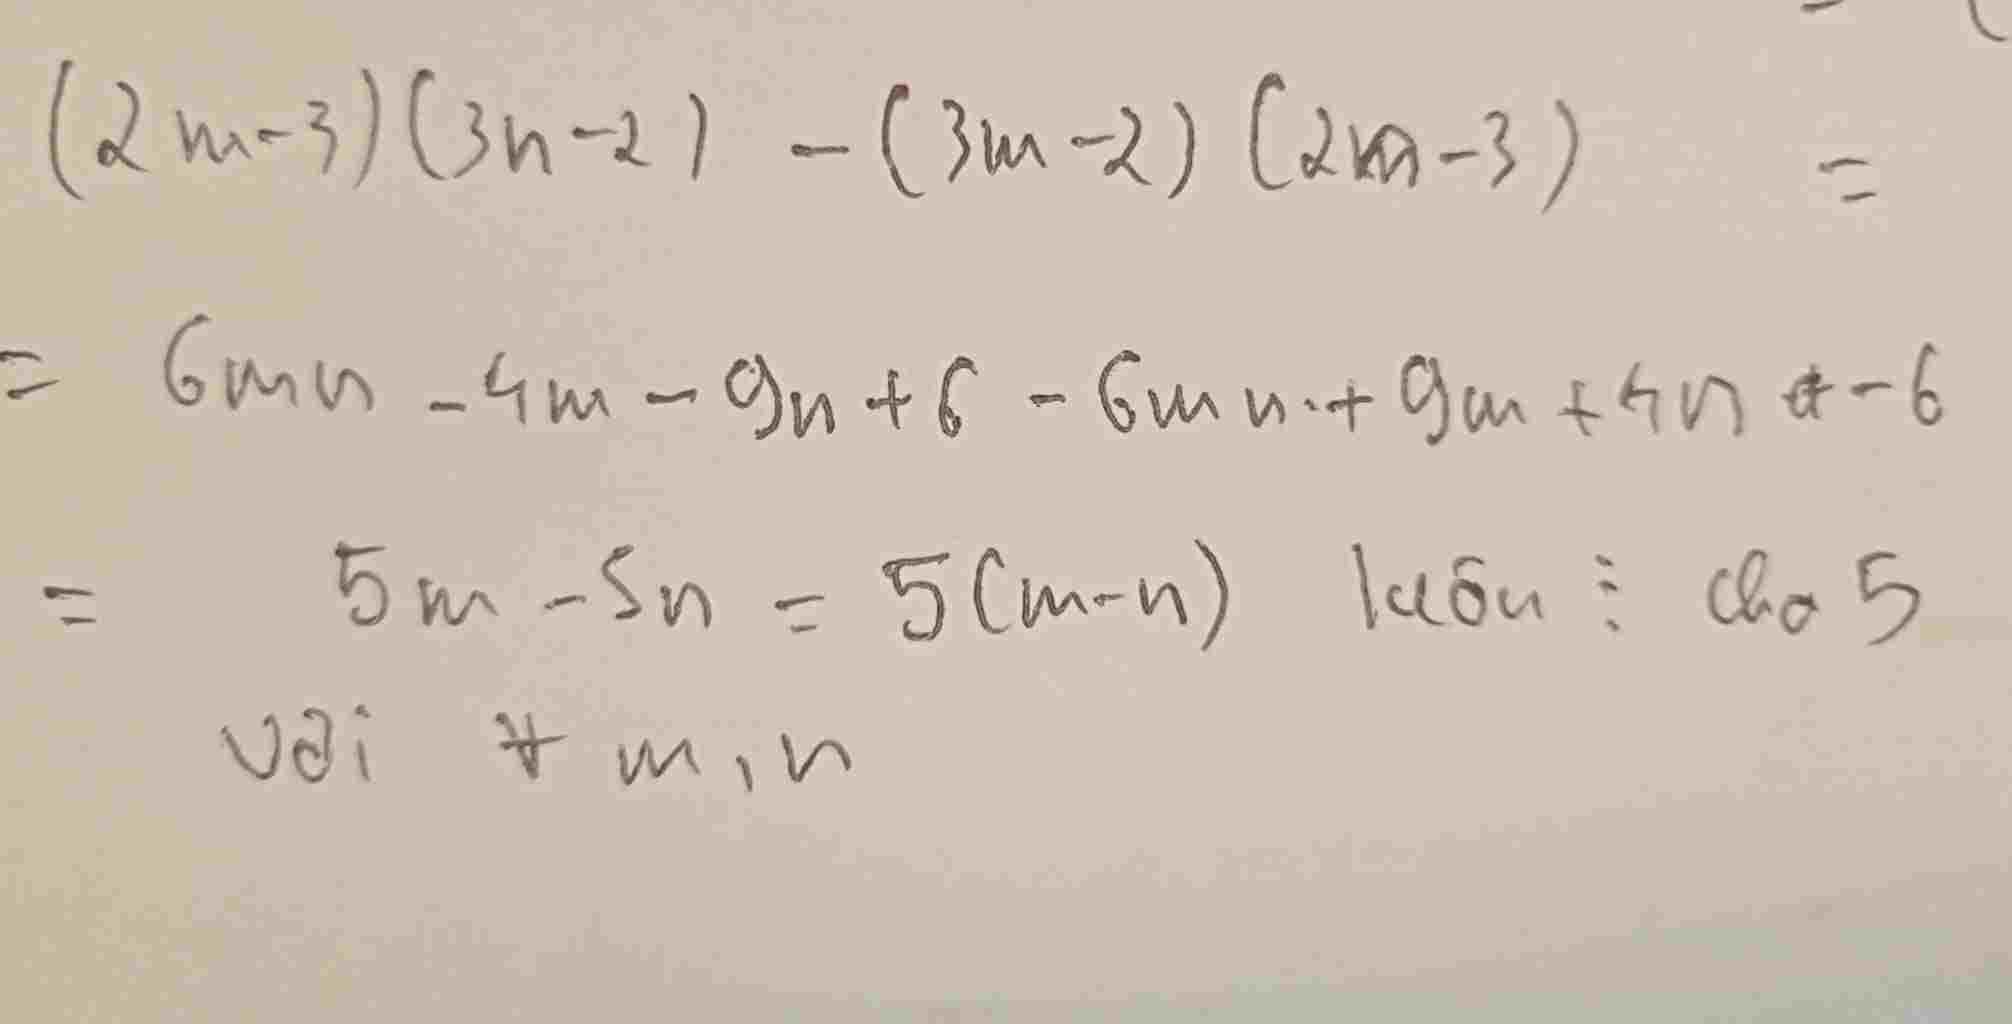 (2m-3)(3n-2) - (3m-2)(2n-3) =
= 6mn - 4m - 9n + 6 - 6mn + 9m + 4n - 6
= 5m - 5n = 5(m-n) luôn ⋮ cho 5
với ∀ m, n